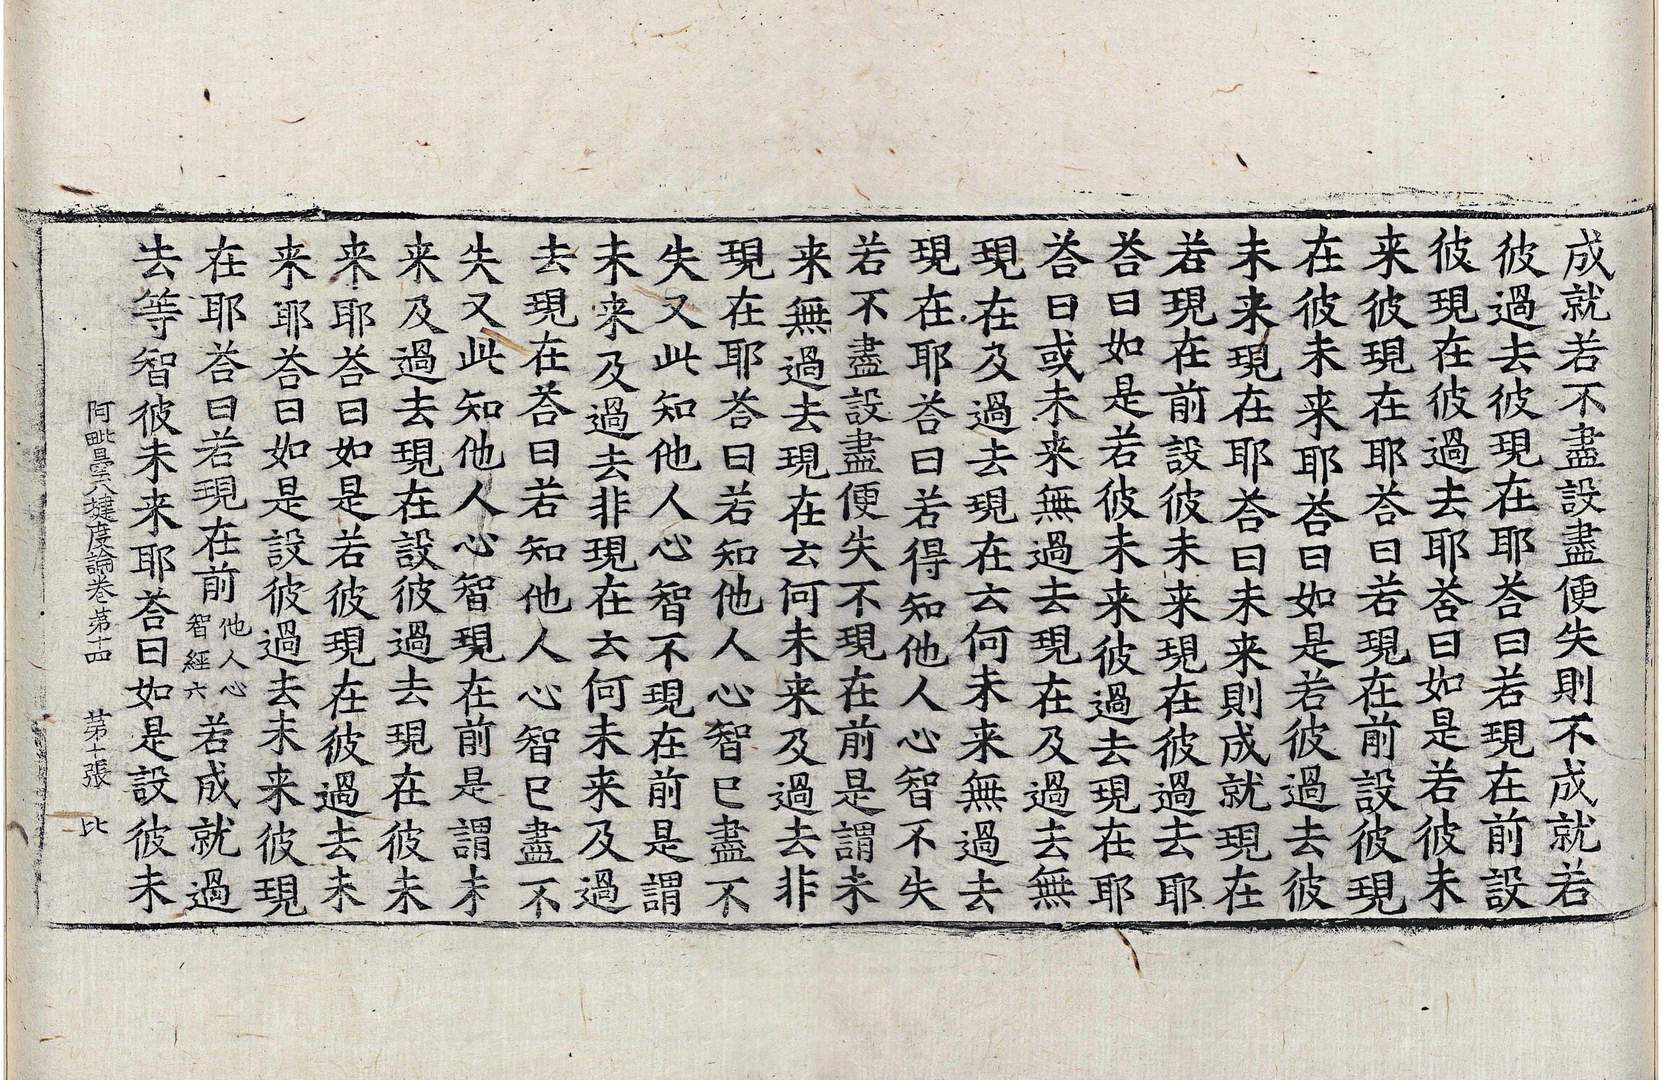 成就若不盡設盡便失則不成就若
彼過去彼現在耶荅曰若現在前設
彼現在彼過去耶荅曰如是若彼未
来彼現在耶荅曰若現在前設彼現
在彼未来耶荅曰如是若彼過去彼
未来現在耶荅曰未来則成就現在
若現在前設彼未来現在彼過去耶
荅曰如是若彼未来彼過去現在耶
荅曰或未来無過去現在及過去無
現在及過去現在云何未来無過去
現在耶荅曰若得知他人心智不失
若不盡設盡便失不現在前是謂未
来無過去現在云何未来及過去非
現在耶荅曰若知他人心智已盡不
失又此知他人心智不現在前是謂
未来及過去非現在云何未来及過
去現在荅曰若知他人心智已盡不
失又此知他人心智現在前是謂未
来及過去現在設彼過去現在彼未
来耶荅曰如是若彼現在彼過去未
来耶荅曰如是設彼過去未来彼現
在耶荅曰若現在前他人心智經六若成就過
去等智彼未来耶荅曰如是設彼未
阿毗曇八揵度論卷第十四 第十張 比